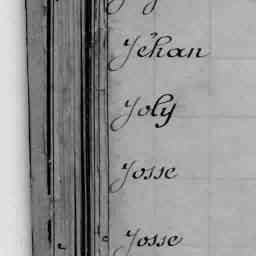 Jéhan
Joly
Josse
Josse